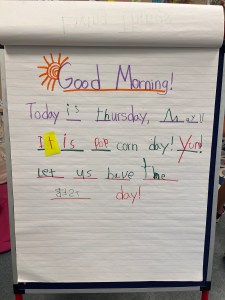 Good Morning!
Today is thursday,
It is pop corn day! Yum!
Let us have the
day!